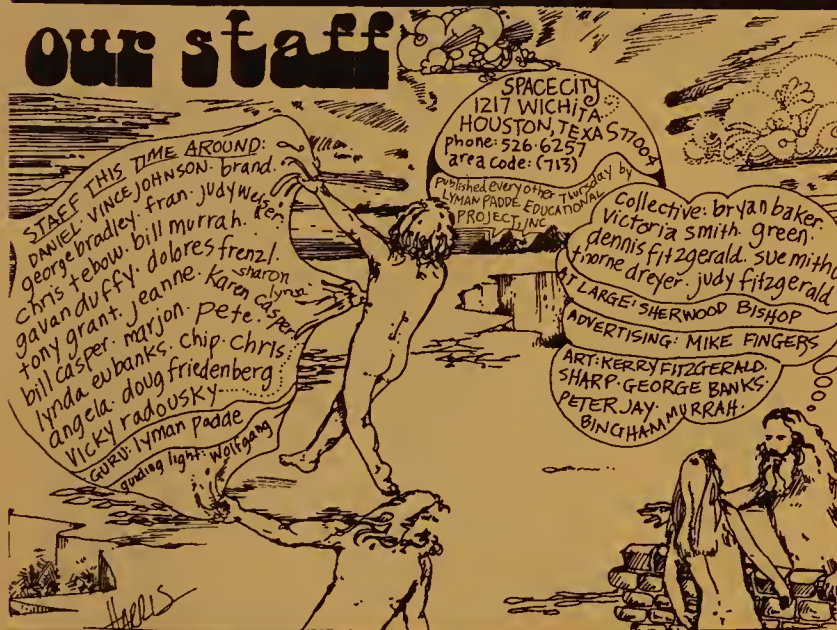 our staff
STAFF THIS TIME AROUND:
DANIEL. VINCE JOHNSON. brand.
george bradley. fran. judy weiser.
chris tebow. bill murrah.
gavan duffy. dolores frenzl.
sharon
lynn
tony grant. jeanne. Karen Casper
bill casper. marjon. Pete.
lynda eubanks. chip. chris.
angela. doug friedenberg
Vicky radousky
GURU: lyman padde
guiding light: Wolfgang
SPACE CITY
1217 WICHITA
HOUSTON, TEXAS 77004
phone: 526-6257
area code: (713)
published every other Thursday by
LYMAN PADDE EDUCATIONAL
PROJECT, INC
collective: bryan baker.
victoria smith. green.
dennis fitzgerald. sue mithun
thorne dreyer. judy fitzgerald
AT LARGE: SHERWOOD BISHOP
ADVERTISING: MIKE FINGERS
ART: KERRY FITZGERALD.
SHARP. GEORGE BANKS.
PETER JAY.
BINGHAM MURRAH.
HARRIS